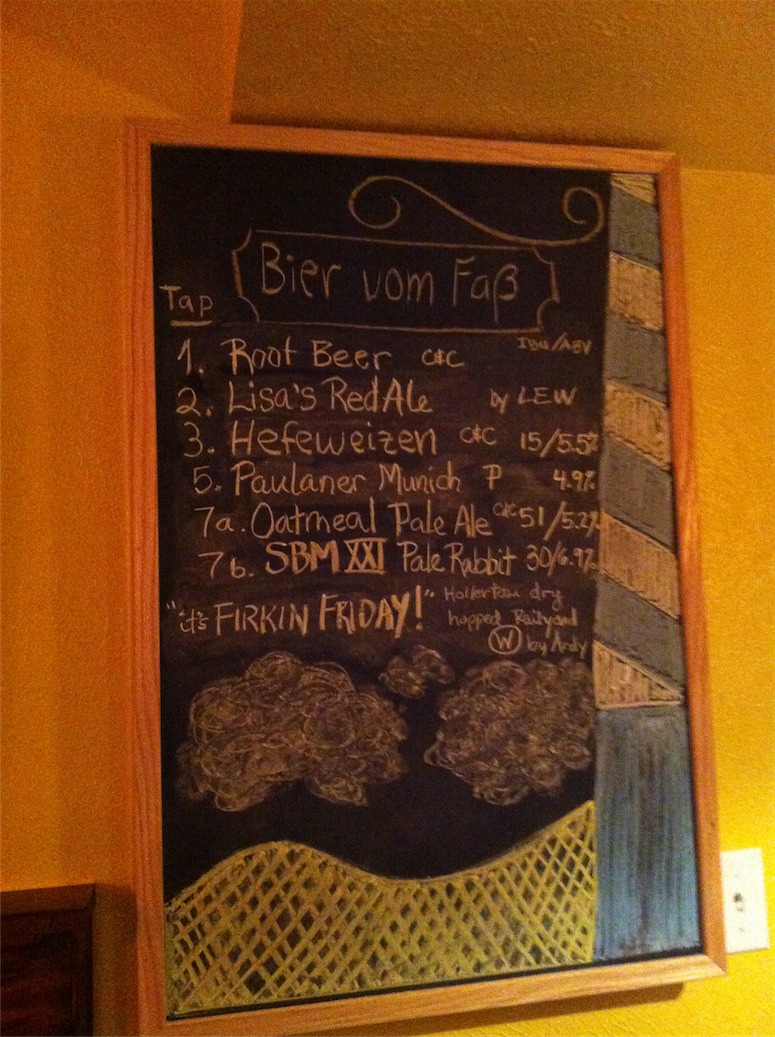 Bier vom Faß
Tap
IBU/ABV
1. Root Beer C&C
2. Lisa's Red Ale by LEW
3. Hefeweizen C&C 15/5.5%
5. Paulaner Munich P 4.9%
7a. Oatmeal Pale Ale C&C 51/5.2%
7b. SBM XXI Pale Rabbit 30/6.9%
"it's FIRKIN FRIDAY!" Hollertau dry
hopped Railyard
W by Andy